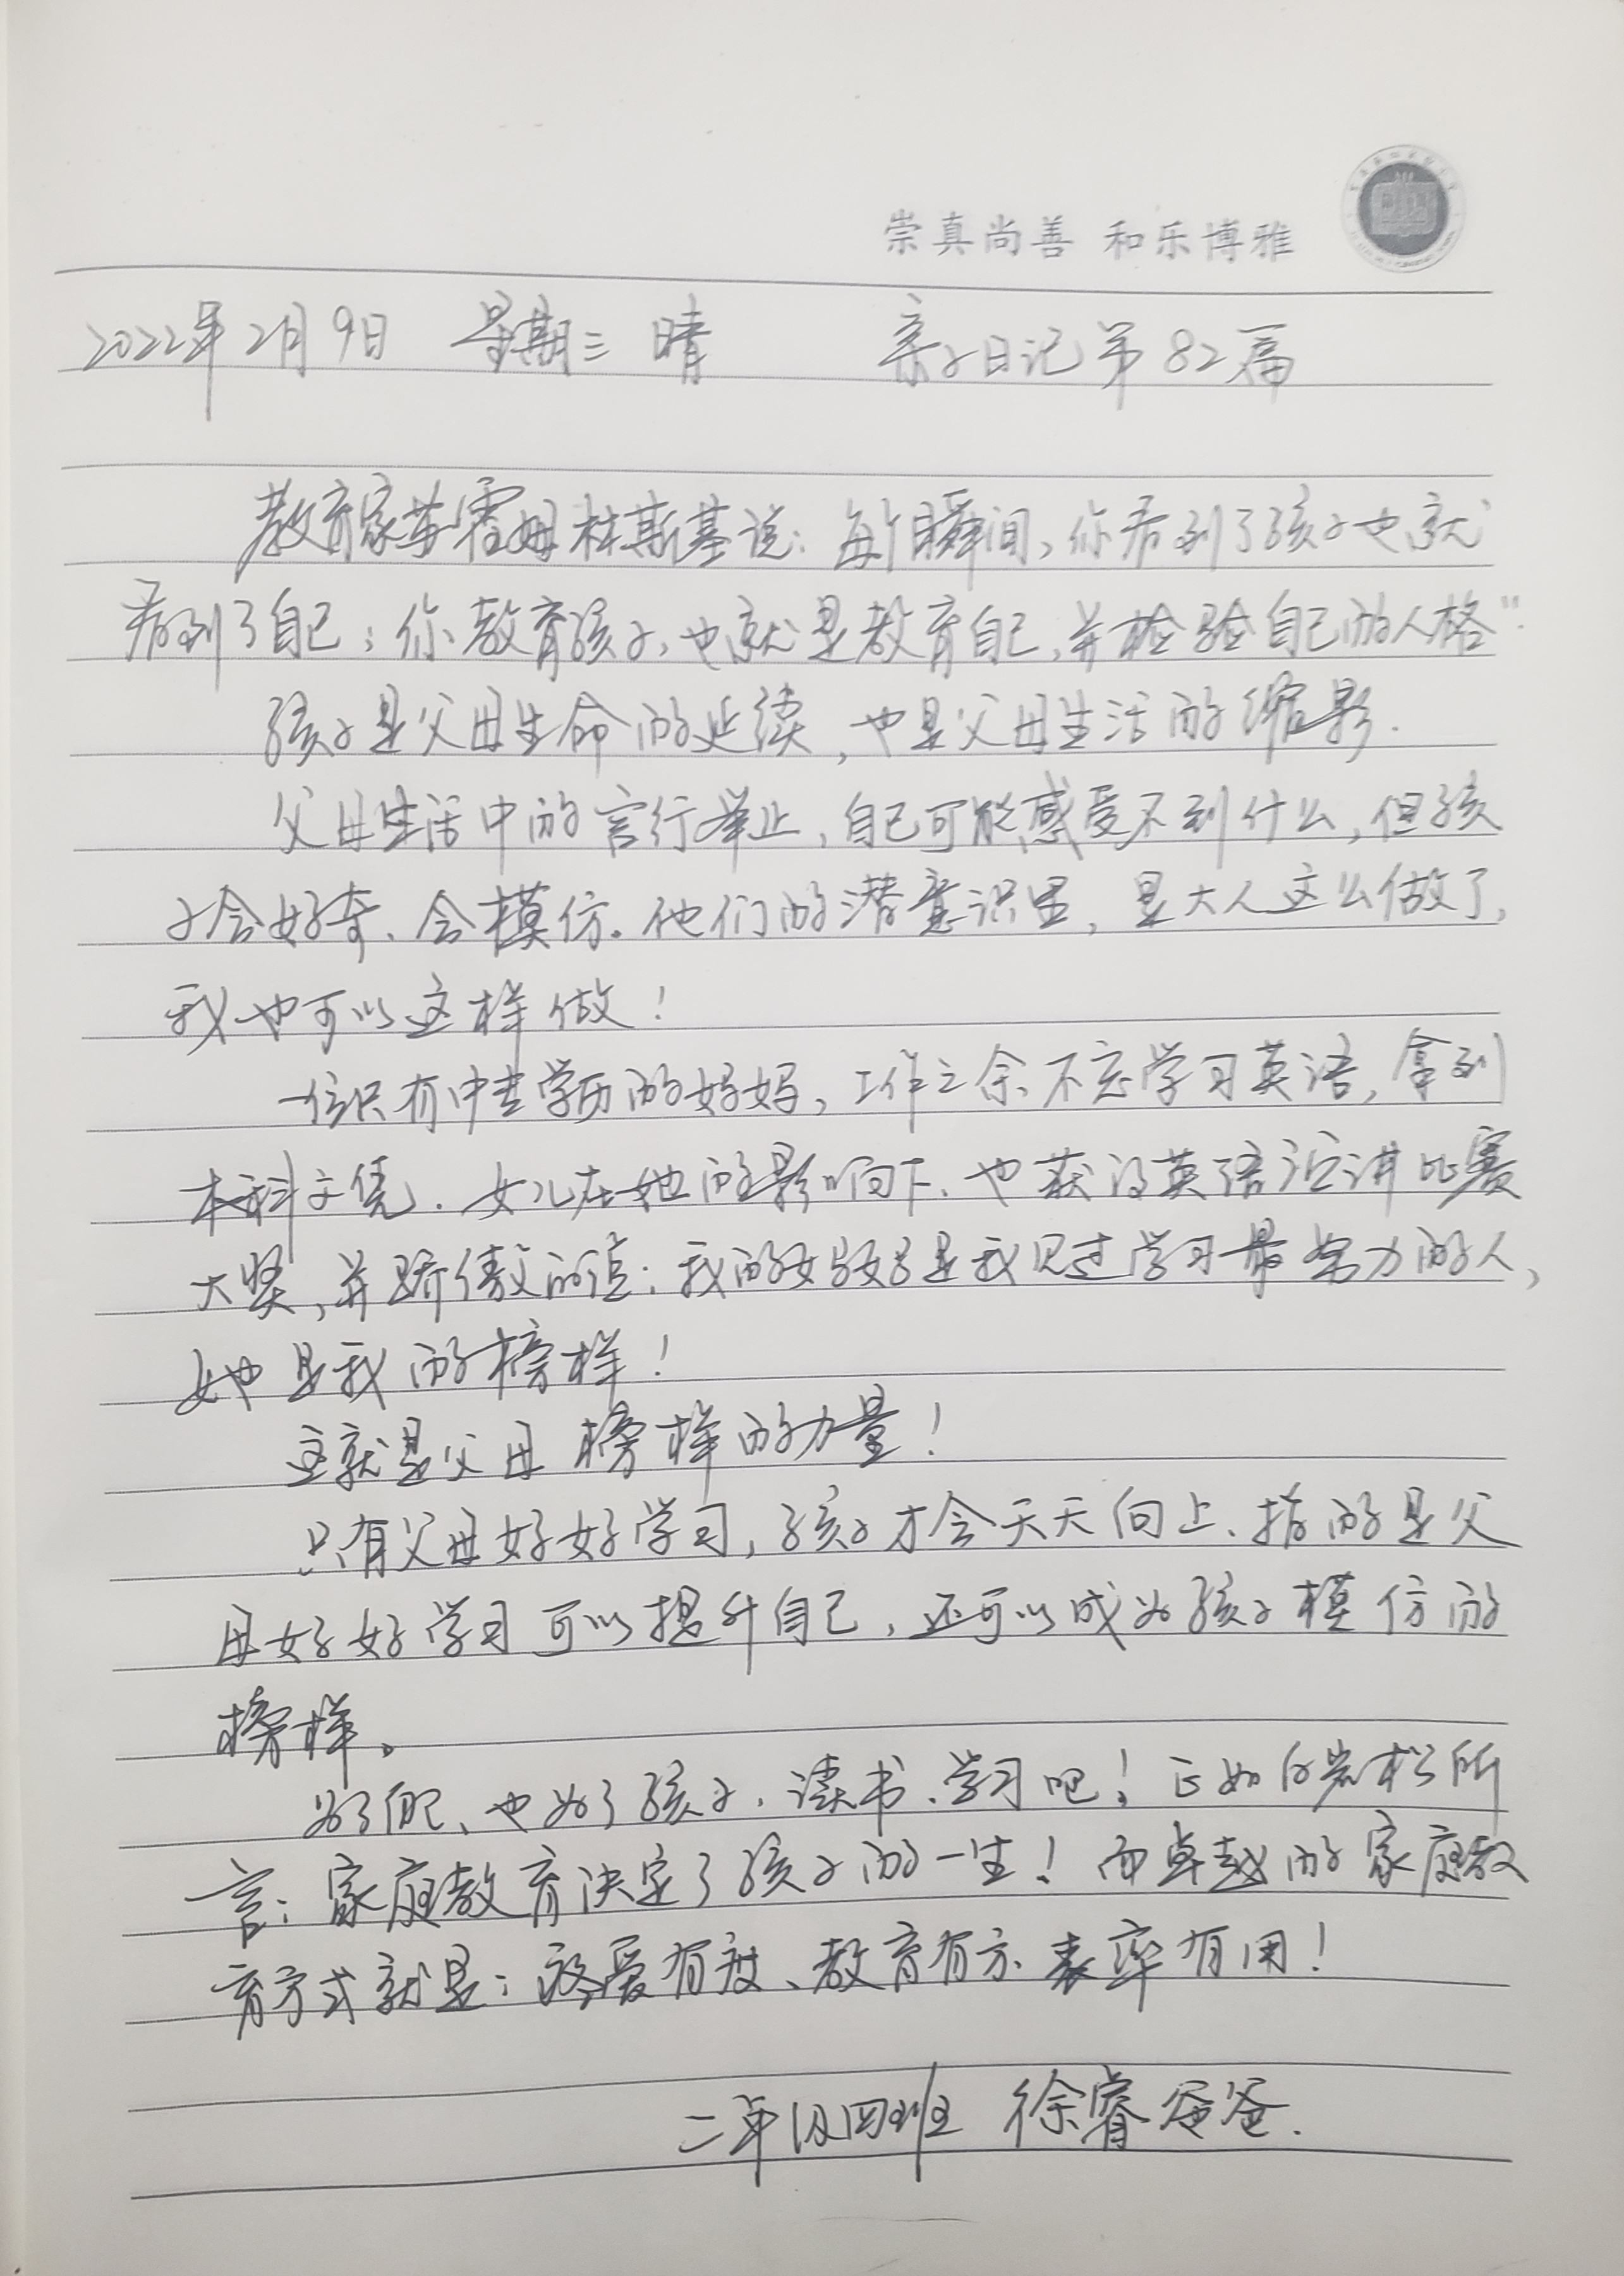 崇真尚善 和乐博雅
2022年2月9日 星期三 晴 亲子日记第82篇
教育家苏霍姆林斯基说：每个瞬间，你看到了孩子也就
看到了自己；你教育孩子，也就是教育自己，并检验自己的人格"
孩子是父母生命的延续，也是父母生活的缩影.
父母生活中的言行举止，自己可能感受不到什么，但孩
子会好奇、会模仿。他们的潜意识里，是大人这么做了，
我也可以这样做！
一位只有中专学历的妈妈，工作之余不忘学习英语，拿到
本科文凭.女儿在她的影响下、也获得英语演讲比赛
大奖，并骄傲的说：我的妈妈是我见过学习最努力的人，
她是我的榜样！
这就是父母榜样的力量！
只有父母好好学习，孩子才会天天向上、指的是父
母好好学习可以提升自己，还可以成为孩子模仿的
榜样。
为了自己、也为了孩子，读书、学习吧！正如白岩松所
言：家庭教育决定了孩子的一生！而卓越的家庭教
育方式就是：疼爱有度、教育有方、表率有用！
二年级四班 徐睿爸爸.